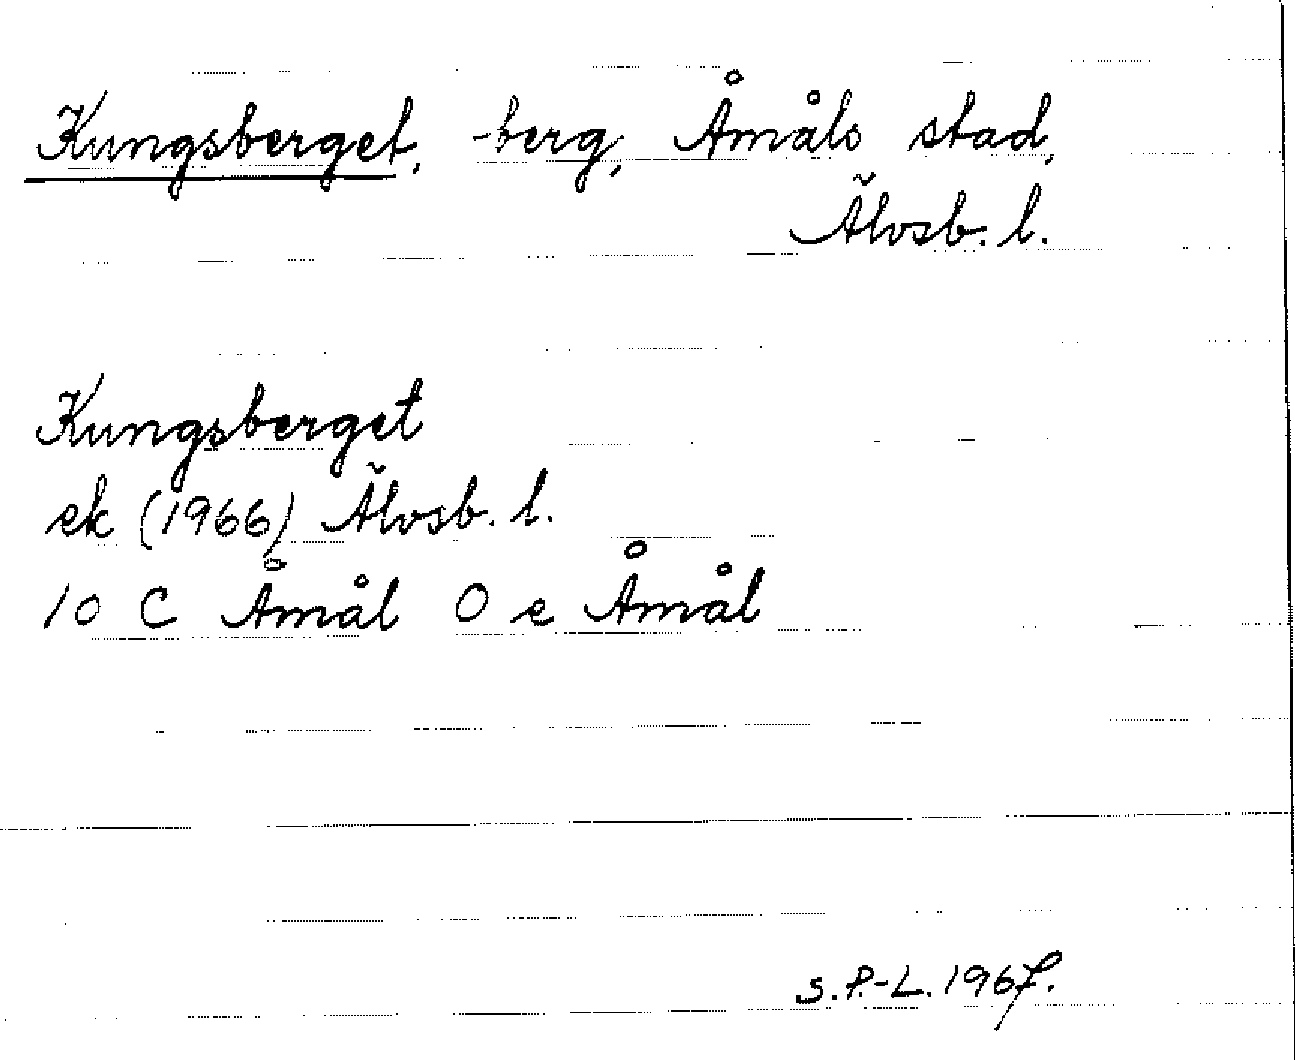 Kungsberget, -berg, Åmåls stad,
Älvsb. l.
Kungsberget
ek (1966) Älvsb. l.
10 C Åmål O e Åmål
S.P.-L. 1967.